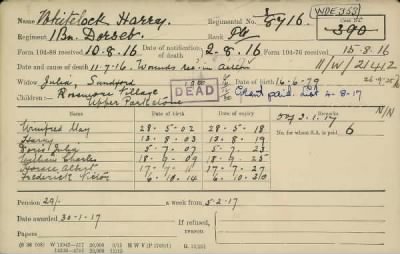 Name Whitelock Harry. Regimental No. 3/8716. WDE 353
Regiment 1 Bn. Dorset. Rank Pte Case No. 390
Form 104-88 received 10.8.16 Date of notification of death 2.8.16 Form 104-76 received 15.8.16
Date and cause of death 11-7-16. Wounds rec. in action 11/W/21412
Widow Julia, Sandford DEAD Date of birth 16-6-79
Children :— Rossmore Village Grant paid 4-8-17
Upper Parkstone
Name. Date of birth Date of expiry N/N
Winifred May 28-5-02 28-5-18 2.1.17
Harry 13-8-03 13-8-19 No. for whom S.A. is paid. 6
Doris July 5-7-07 5-7-23
William Charles 18-7-09 18-7-25
Horace Albert 17-7-11 17-7-27
Frederick Victor 6-10-14 6-10-30
Pension 29/- a week from 5-2-17
Dated award 30-1-17 If refused, reason
Papers